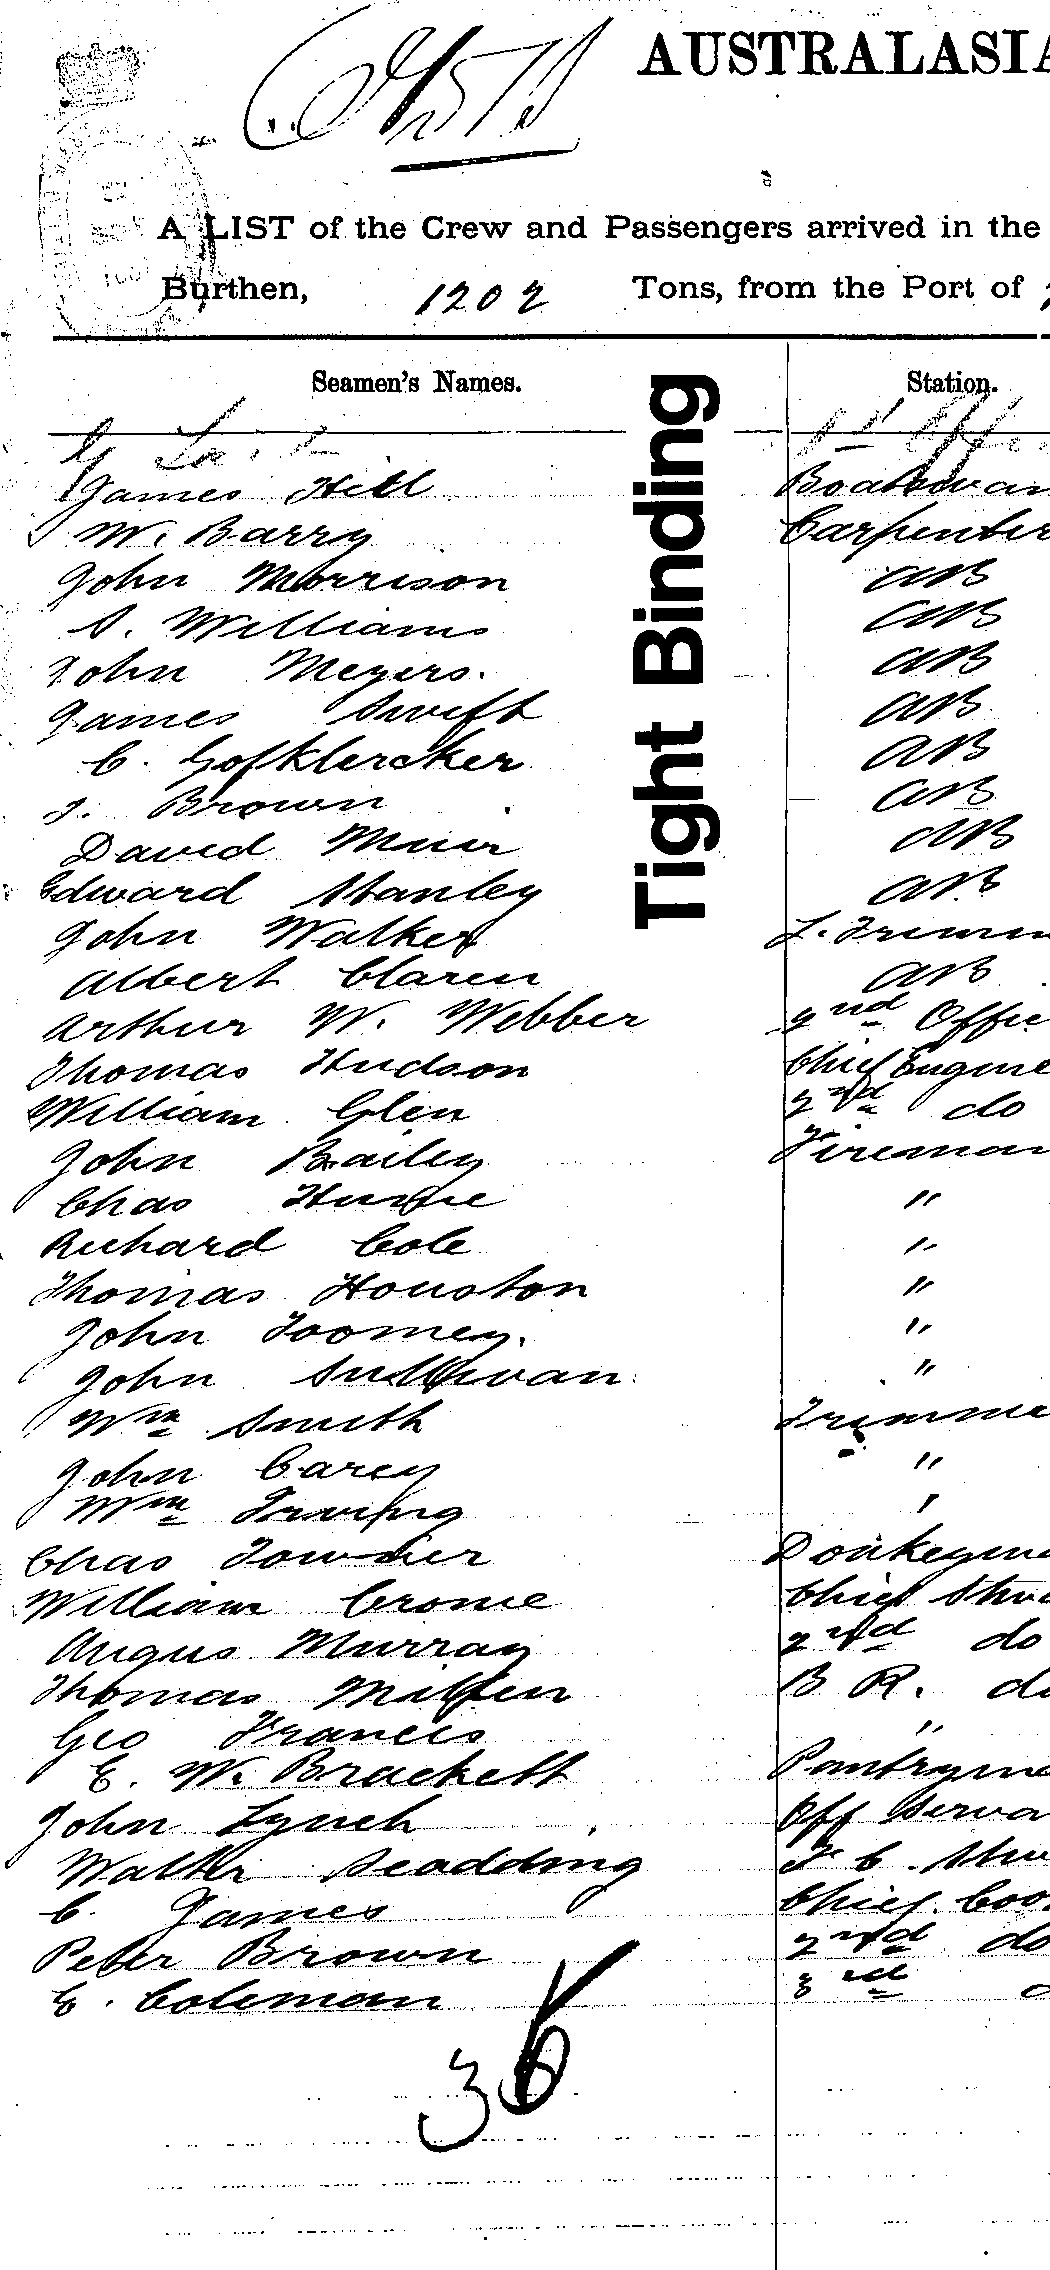 AUSTRALASIA
A LIST of the Crew and Passengers arrived in the
Burthen, 1202 Tons, from the Port of
Seamen's Names. Station.
1st Offi
James Hill Boatswain
W. Barry Carpenter
John Morrison AB
S. Williams AB
John Meyers. AB
James Swift AB
C. Gofklercker AB
J. Brown AB
David Muir AB
Edward Stanley AB
John Walker L. Trimm
Albert Claren AB
Arthur W. Webber 2nd Office
Thomas Hudson Chief Engine
William Glen 2nd do
John Bailey Fireman
Chas Hume "
Richard Cole "
Thomas Houston "
John Toomey. "
John Sullivan "
Wm Smith Trimme
John Carey "
Wm Irving "
Chas Towner Donkeyme
William Crome Chief Stew
Angus Murray 2nd do
Thomas Milfen B R. do
Geo Francis "
E. W. Brackett Pantryme
John Lynch Off Serva
Walter Scadding F C. Stew
C. James Chief Coo
Peter Brown 2nd do
E. Coleman 3rd
36
Tight Binding